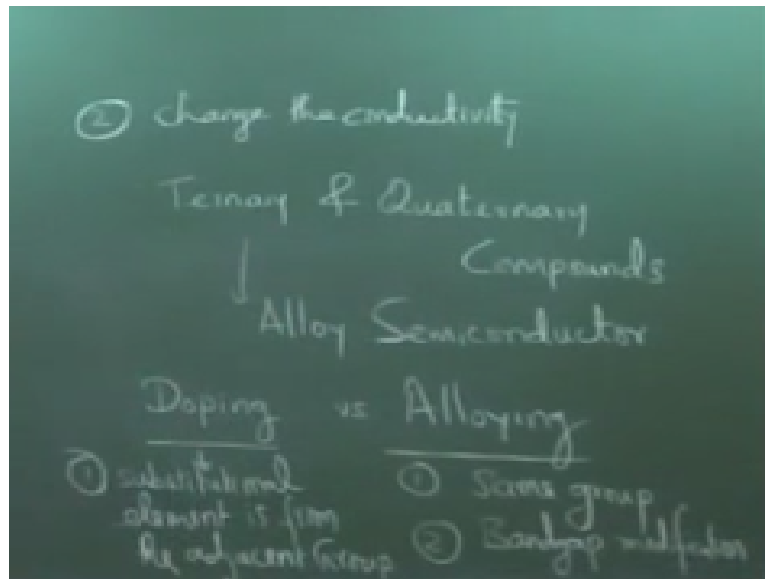 ② change the conductivity
Ternary & Quaternary
Compounds
↓
Alloy Semiconductor
Doping vs Alloying
① substitutional
element is from
the adjacent Group
① Same group
② Bandgap